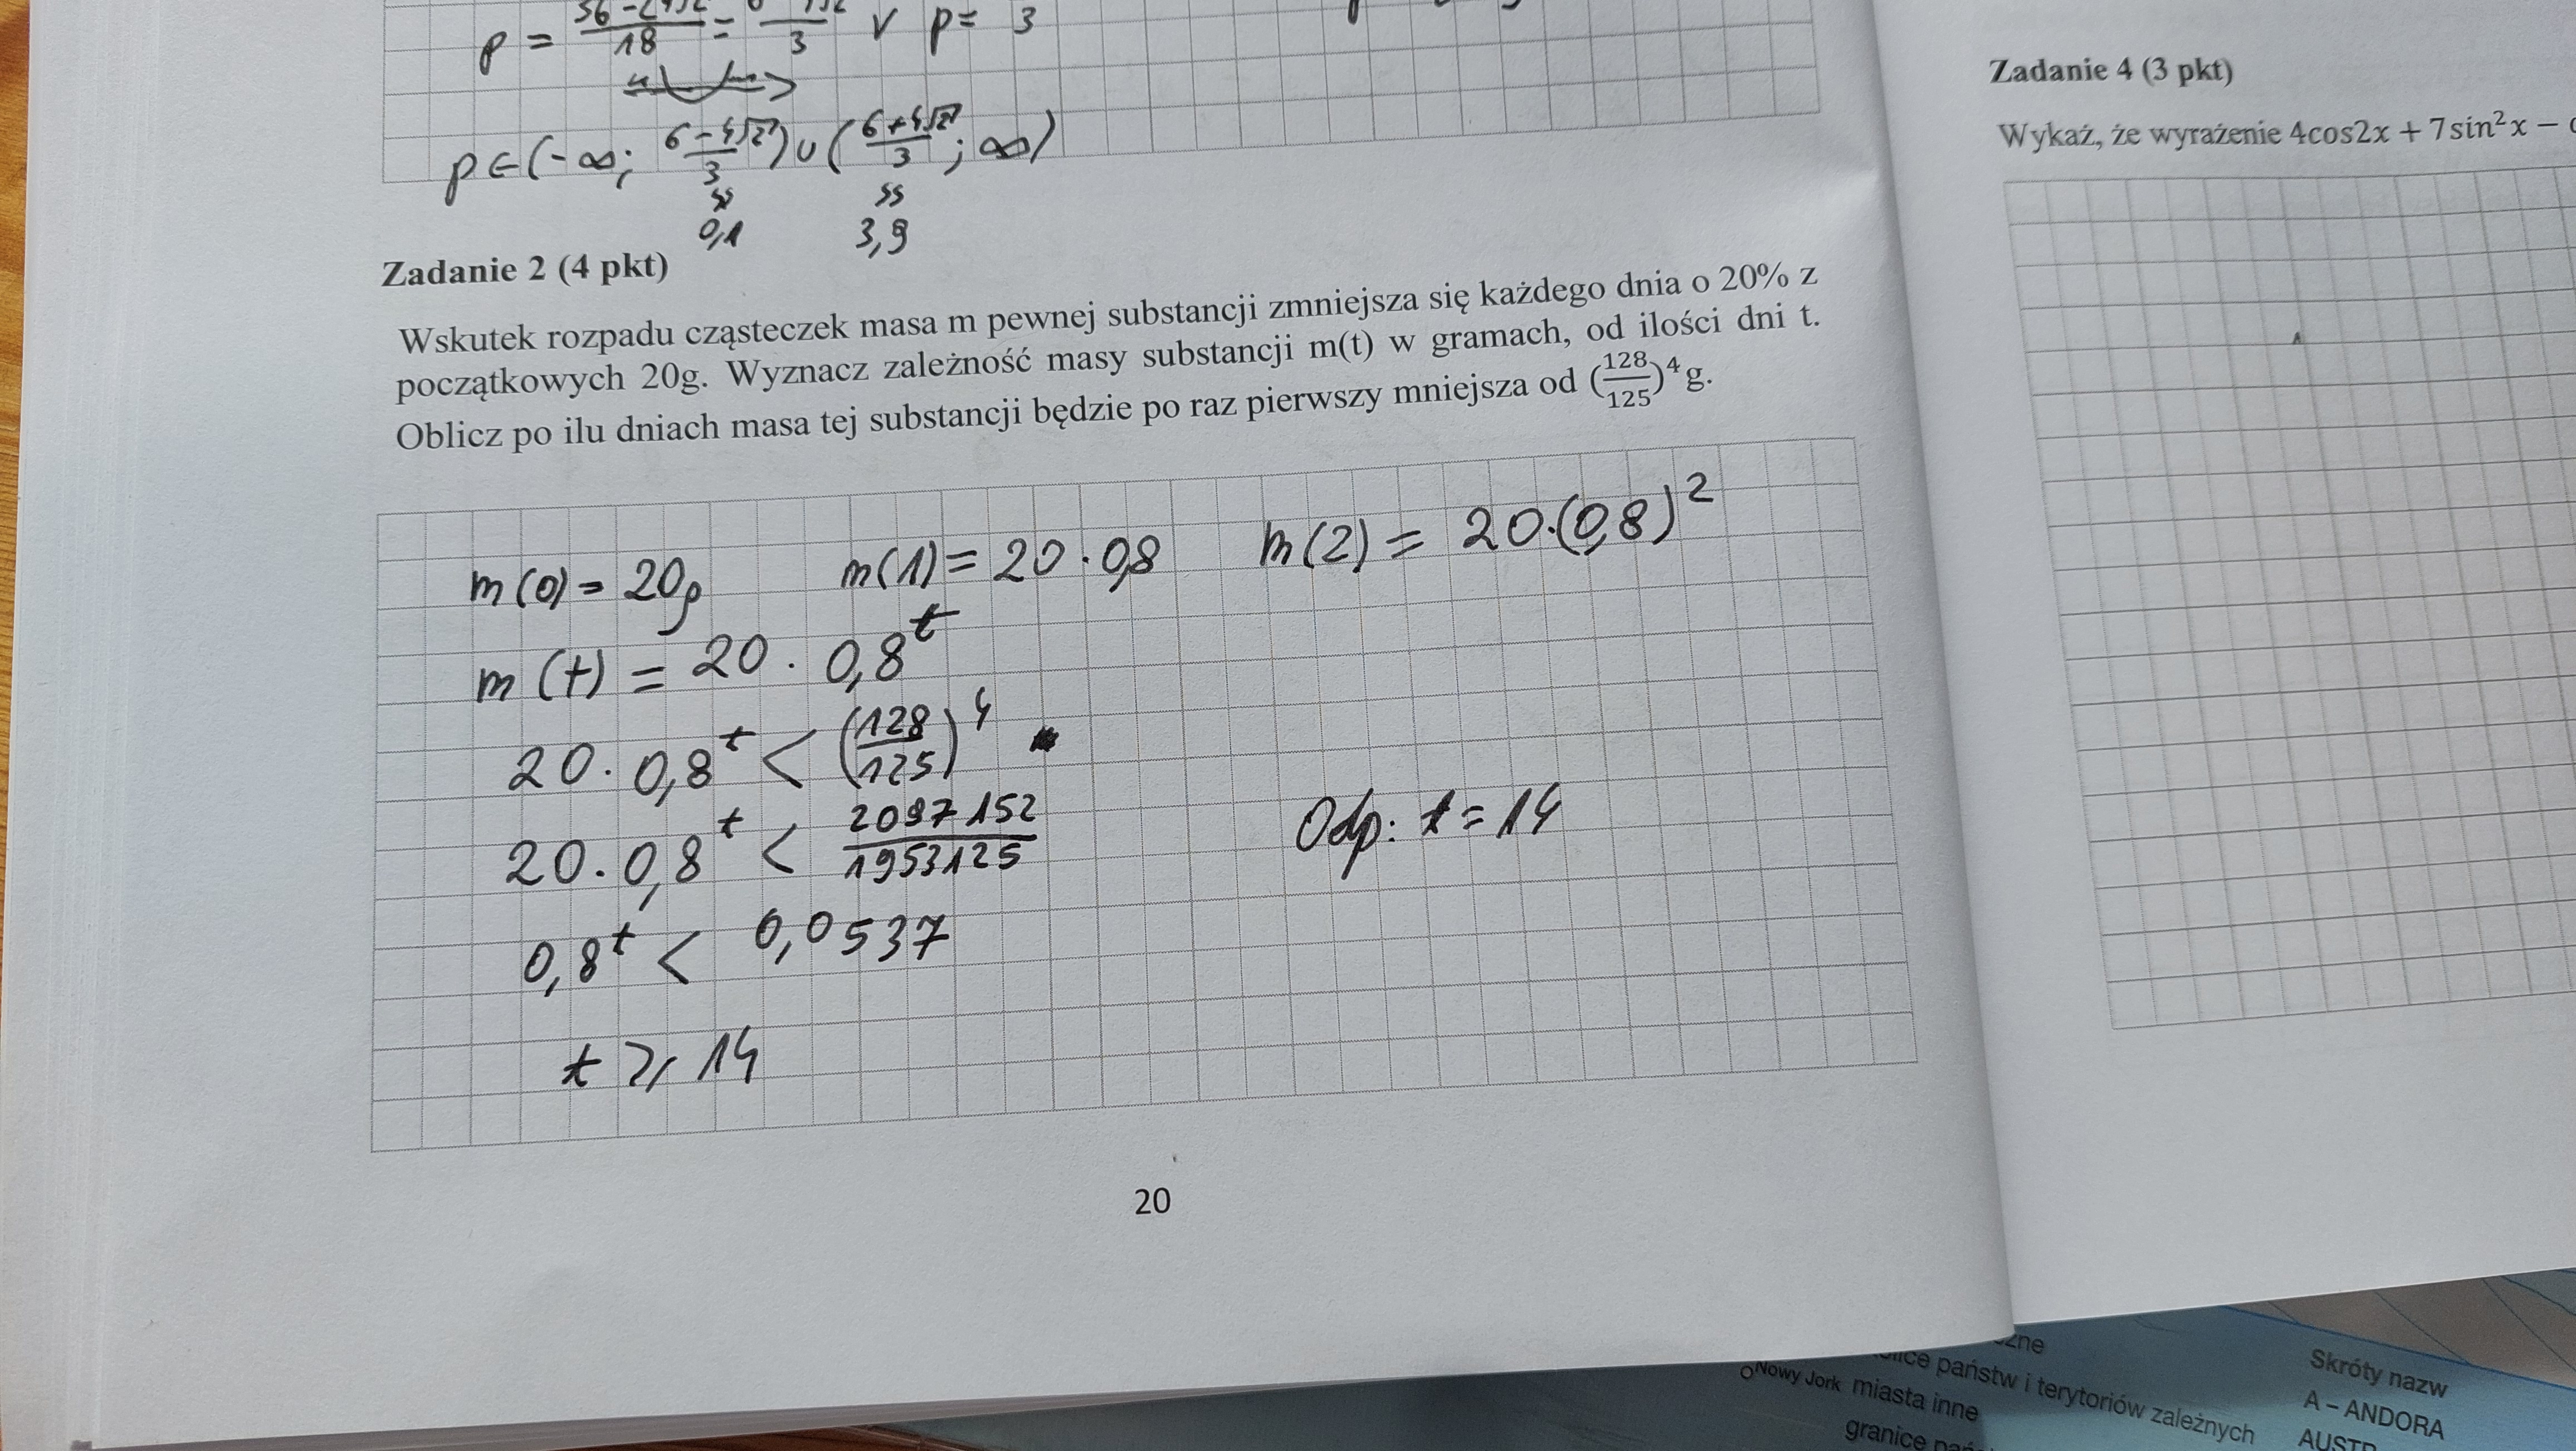 p = 56-24√2/18 = /3 v p= 3
p∈(-∞; 6-4√2/3)∪(6+4√2/3; ∞)
≈ ≈
0,1 3,9
Zadanie 2 (4 pkt)
Wskutek rozpadu cząsteczek masa m pewnej substancji zmniejsza się każdego dnia o 20% z
początkowych 20g. Wyznacz zależność masy substancji m(t) w gramach, od ilości dni t.
Oblicz po ilu dniach masa tej substancji będzie po raz pierwszy mniejsza od (128/125)⁴g.
m(0)= 20g m(1)= 20·0,8 m(2)= 20·(0,8)²
m(t) = 20· 0,8^t
20· 0,8^t < (128/125)⁴
20·0,8^t < 2097152/1953125
Odp: t=14
0,8^t < 0,0537
t ≥ 14
20
Zadanie 4 (3 pkt)
Wykaż, że wyrażenie 4cos2x + 7sin²x −
państw i terytoriów zależnych
Nowy Jork miasta inne
granice
Skróty nazw
A – ANDORA